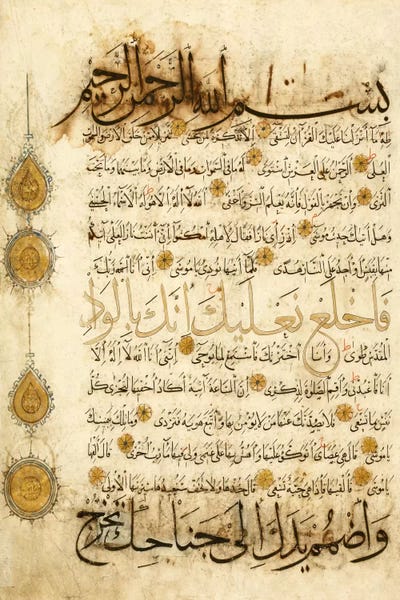 بسم الله الرحمن الرحيم
طه ما أنزلنا عليك القرآن لتشقى إلا تذكرة لمن يخشى تنزيلا ممن خلق الأرض والسموات
العلى الرحمن على العرش استوى له ما في السموات وما في الأرض وما بينهما وما تحت
الثرى وإن تجهر بالقول فإنه يعلم السر وأخفى الله لا إله إلا هو له الأسماء الحسنى
وهل أتاك حديث موسى إذ رأى نارا فقال لأهله امكثوا إني آنست نارا لعلي آتيكم
منها بقبس أو أجد على النار هدى فلما أتاها نودي يا موسى إني أنا ربك
فاخلع نعليك إنك بالواد
المقدس طوى وأنا اخترتك فاستمع لما يوحى إنني أنا الله لا إله إلا
أنا فاعبدني وأقم الصلوة لذكري إن الساعة آتية أكاد أخفيها لتجزى كل
نفس بما تسعى فلا يصدنك عنها من لا يؤمن بها واتبع هواه فتردى وما تلك بيمينك
يا موسى قال هي عصاي أتوكؤا عليها وأهش بها على غنمي ولي فيها مآرب أخرى قال ألقها
يا موسى فألقاها فإذا هي حية تسعى قال خذها ولا تخف سنعيدها سيرتها الأولى
واضمم يدك إلى جناحك تخرج